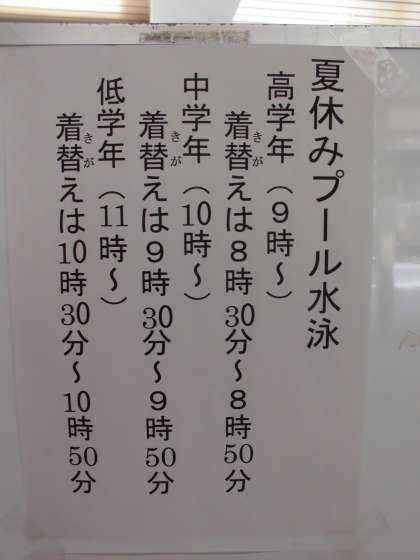 夏休みプール水泳
高学年（９時～）
着替えは８時30分～８時50分
きが
中学年（10時～）
着替えは９時30分～９時50分
きが
低学年（11時～）
着替えは10時30分～10時50分
きが